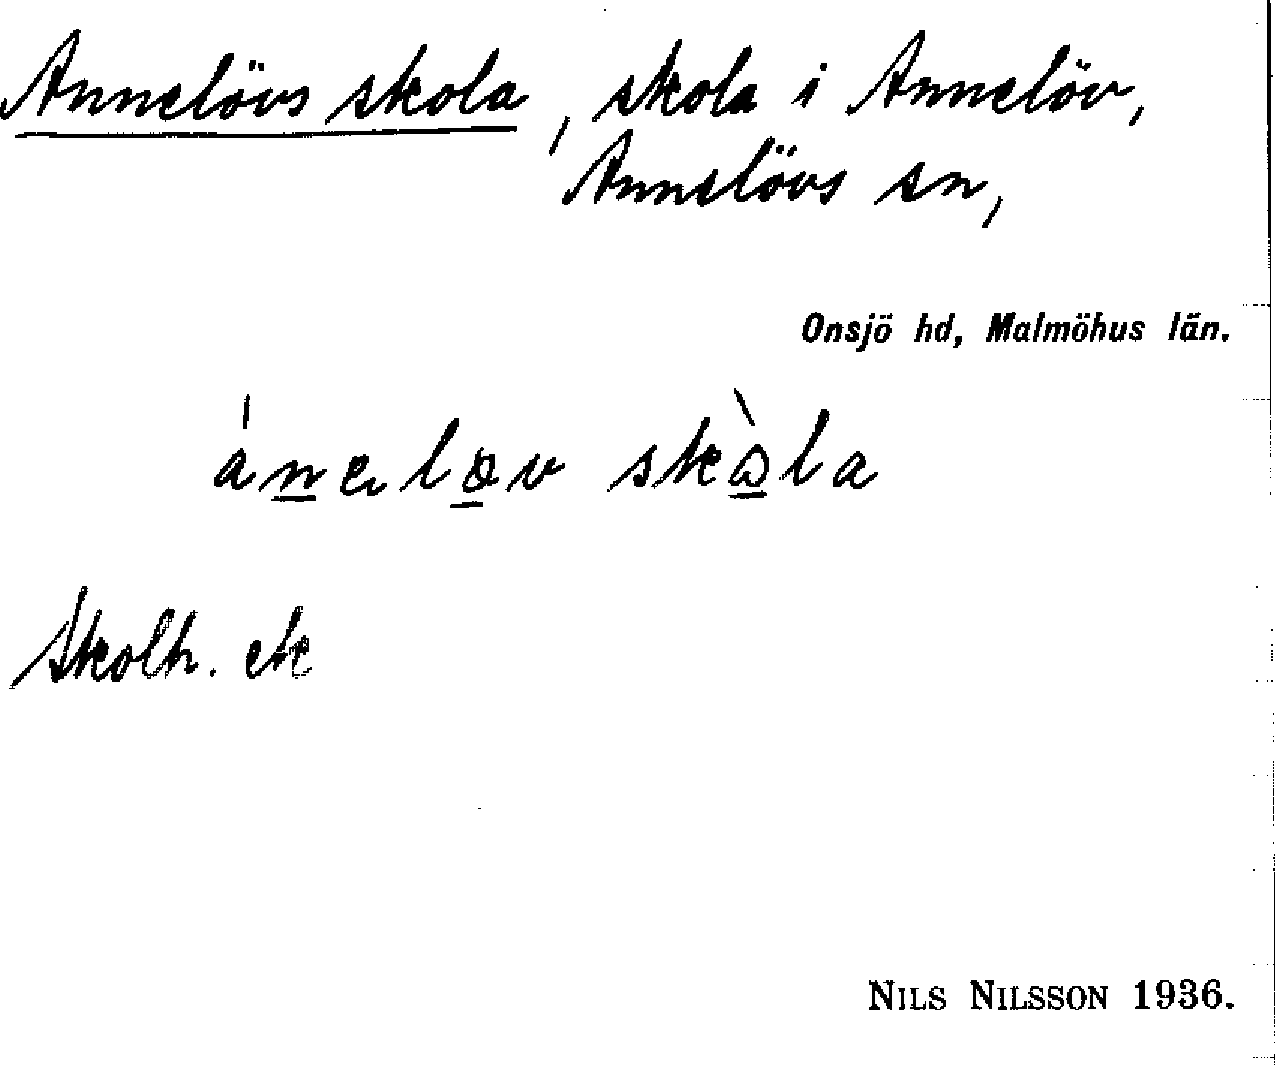 Annelövs skola, skola i Annelöv,
Annelövs sn,
Onsjö hd, Malmöhus län.
áneløv skòla
Skolh. ek
NILS NILSSON 1936.